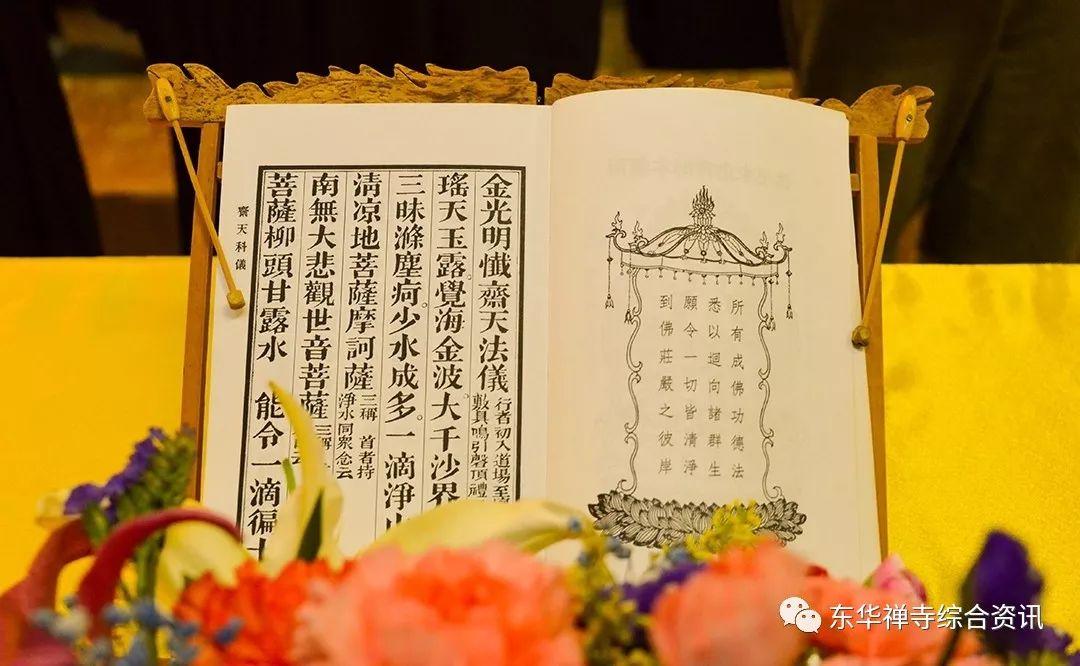 所有成佛功德法
悉以迴向諸群生
願令一切皆清淨
到佛莊嚴之彼岸
金光明懺齋天法儀
行者初入道場至
敷具鳴引磬頂禮
瑤天玉露。覺海金波。大千沙界
三昧滌塵疴。少水成多。一滴淨
清凉地菩薩摩訶薩
三稱 首者持
淨水同眾念云
南無大悲觀世音菩薩
三稱
菩薩柳頭甘露水 能令一滴徧十
齋天科儀
东华禅寺综合资讯